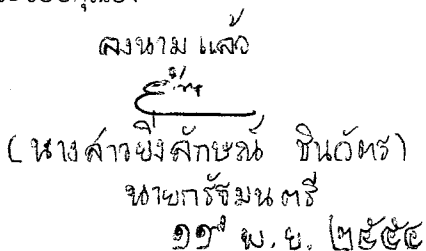 ลงนามแล้ว
(นางสาวยิ่งลักษณ์ ชินวัตร)
นายกรัฐมนตรี
พ.ย. ๒๕๕๔